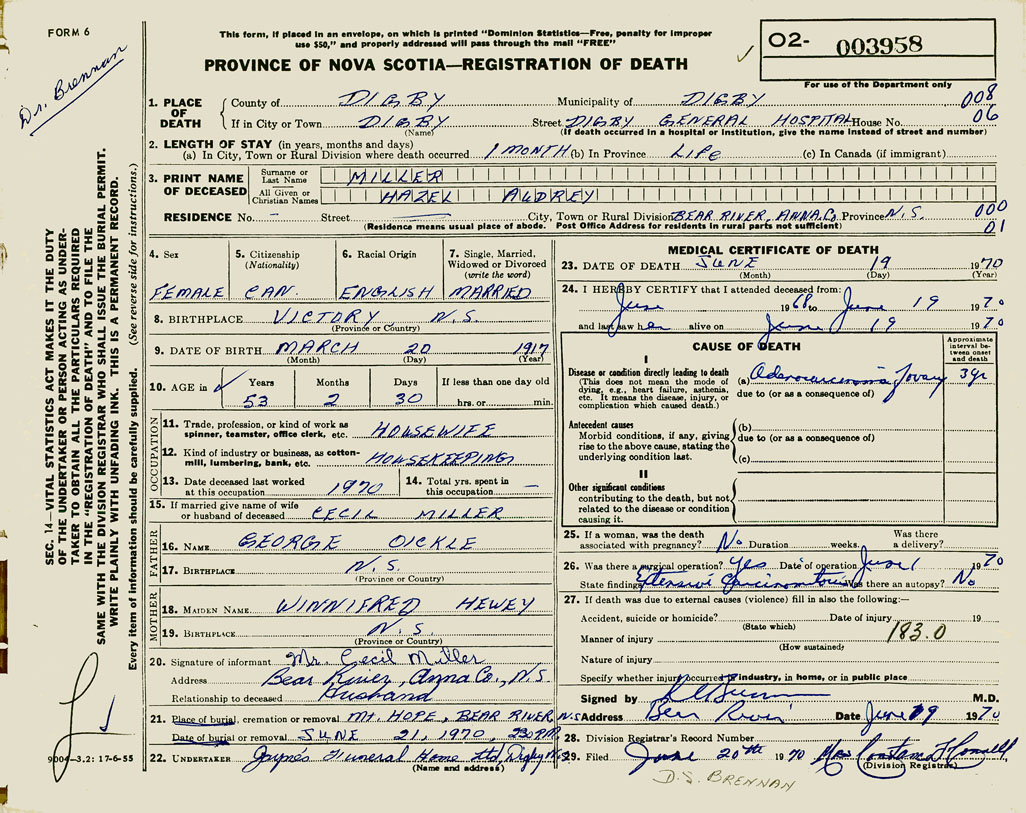 FORM 6
Dr. Brennan
This form, if placed in an envelope, on which is printed "Dominion Statistics—Free, penalty for improper
use $50," and properly addressed will pass through the mail "FREE"
PROVINCE OF NOVA SCOTIA—REGISTRATION OF DEATH
O2- 003958
For use of the Department only
1. PLACE OF DEATH
County of DIGBY Municipality of DIGBY 008
If in City or Town DIGBY Street DIGBY GENERAL HOSPITAL House No. 06
(Name) (If death occurred in a hospital or institution, give the name instead of street and number)
2. LENGTH OF STAY (in years, months and days)
(a) In City, Town or Rural Division where death occurred 1 MONTH (b) In Province LIFE (c) In Canada (if immigrant)
3. PRINT NAME OF DECEASED
Surname or Last Name MILLER
All Given or Christian Names HAZEL AUDREY
RESIDENCE No. - Street City, Town or Rural Division BEAR RIVER, ANNA. Co. Province N.S. 000
(Residence means usual place of abode. Post Office Address for residents in rural parts not sufficient) 01
4. Sex FEMALE
5. Citizenship (Nationality) CAN.
6. Racial Origin ENGLISH
7. Single, Married, Widowed or Divorced (write the word) MARRIED
8. BIRTHPLACE VICTORY N.S.
(Province or Country)
9. DATE OF BIRTH MARCH 20 1917
(Month) (Day) (Year)
10. AGE in Years Months Days If less than one day old
53 2 30 hrs. or min.
OCCUPATION
11. Trade, profession, or kind of work as spinner, teamster, office clerk, etc. HOUSEWIFE
12. Kind of industry or business, as cotton-mill, lumbering, bank, etc. HOUSEKEEPING
13. Date deceased last worked at this occupation 1970
14. Total yrs. spent in this occupation —
15. If married give name of wife or husband of deceased CECIL MILLER
FATHER
16. NAME GEORGE OICKLE
17. BIRTHPLACE N.S.
(Province or Country)
MOTHER
18. MAIDEN NAME WINNIFRED HEWEY
19. BIRTHPLACE N.S.
(Province or Country)
20. Signature of informant Mr. Cecil Miller
Address Bear River, Anna Co., N.S.
Relationship to deceased Husband
21. Place of burial, cremation or removal MT. HOPE, BEAR RIVER, N.S.
Date of burial or removal JUNE 21, 1970, 2:30 PM
22. UNDERTAKER Funeral Home Ltd, Digby N.S.
(Name and address)
MEDICAL CERTIFICATE OF DEATH
23. DATE OF DEATH JUNE 19 1970
(Month) (Day) (Year)
24. I HEREBY CERTIFY that I attended deceased from
June 1968 to June 19 1970
and last saw her alive on June 19 1970
CAUSE OF DEATH
Approximate interval between onset and death
I
Disease or condition directly leading to death
(This does not mean the mode of dying, e.g., heart failure, asthenia, etc. It means the disease, injury, or complication which caused death.)
(a) Adenocarcinoma, ovary 3 yr
due to (or as a consequence of)
Antecedent causes
Morbid conditions, if any, giving rise to the above cause, stating the underlying condition last.
(b)
due to (or as a consequence of)
(c)
II
Other significant conditions
contributing to the death, but not related to the disease or condition causing it.
25. If a woman, was the death associated with pregnancy? No Duration weeks. Was there a delivery?
26. Was there a surgical operation? Yes Date of operation June 1 1970
State findings Extensive Carcinomatous Was there an autopsy? No
27. If death was due to external causes (violence) fill in also the following:—
Accident, suicide or homicide? Date of injury 19
(State which)
Manner of injury 183.0
(How sustained)
Nature of injury
Specify whether injury occurred in industry, in home, or in public place
Signed by M.D.
Address Bear River Date June 19 1970
28. Division Registrar's Record Number
29. Filed June 20th 1970
(Division Registrar)
D.S. BRENNAN
SEC. 14—VITAL STATISTICS ACT MAKES IT THE DUTY
OF THE UNDERTAKER OR PERSON ACTING AS UNDER-
TAKER TO OBTAIN ALL THE PARTICULARS REQUIRED
IN THE "REGISTRATION OF DEATH" AND TO FILE THE
SAME WITH THE DIVISION REGISTRAR WHO SHALL ISSUE THE BURIAL PERMIT.
WRITE PLAINLY WITH UNFADING INK. THIS IS A PERMANENT RECORD.
Every item of information should be carefully supplied. (See reverse side for instructions.)
9004—3.2: 17-6-55